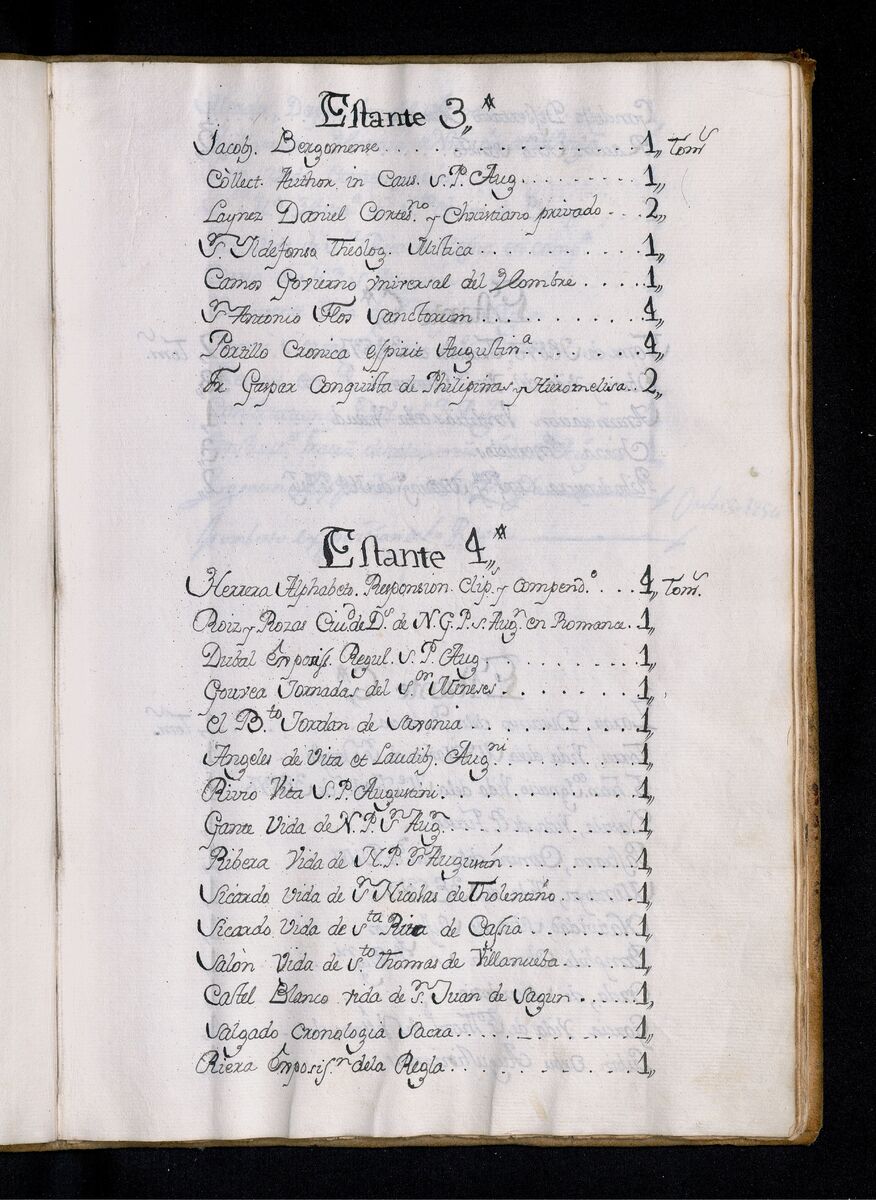 Estante 3,,
Jacob. Bergomense 1,, Tom.s
Collect. Author. in Caus. S. P. Aug. 1,,
Laynez Daniel Cortes.no y Christiano privado 2,,
S.n Ildefonso Theolog. Mistica 1,,
Camos Govierno vniversal del Hombre 1,,
S.n Antonio Flos Sanctorum 4,,
Portillo Cronica espirit Augustin.a 4,,
Fr. Gaspar Conquista de Philipinas y Hieromelisa 2,,
Estante 4,,
Herrera Alphabeto. Responsion. Clip. y Compend.o 4,, Tom.s
Roiz y Rozas Ciu.d de D.s de N. G. P. S. Aug.n en Romance 1,,
Dubal Exposiss. Regul. S. P. Aug. 1,,
Gouvea Jornadas del S.or Mineses 1,,
el B.to Jordan de Saxonia 1,,
Angeles de Vita et Laudib. Aug.ni 1,,
Rivio Vita S. P. Augustini 1,,
Gante Vida de N. P. S.n Aug.n 1,,
Ribera Vida de N. P. S.n Augustin 1,,
Sicardo Vida de S.n Nicolas de Tholentino 1,,
Sicardo Vida de S.ta Rita de Cassia 1,,
Salòn Vida de S.to Thomas de Villanueba 1,,
Castel Blanco vida de S.n Juan de Sagun 1,,
Salgado Cronologia Sacra 1,,
Riera Exposis.n dela Regla 1,,